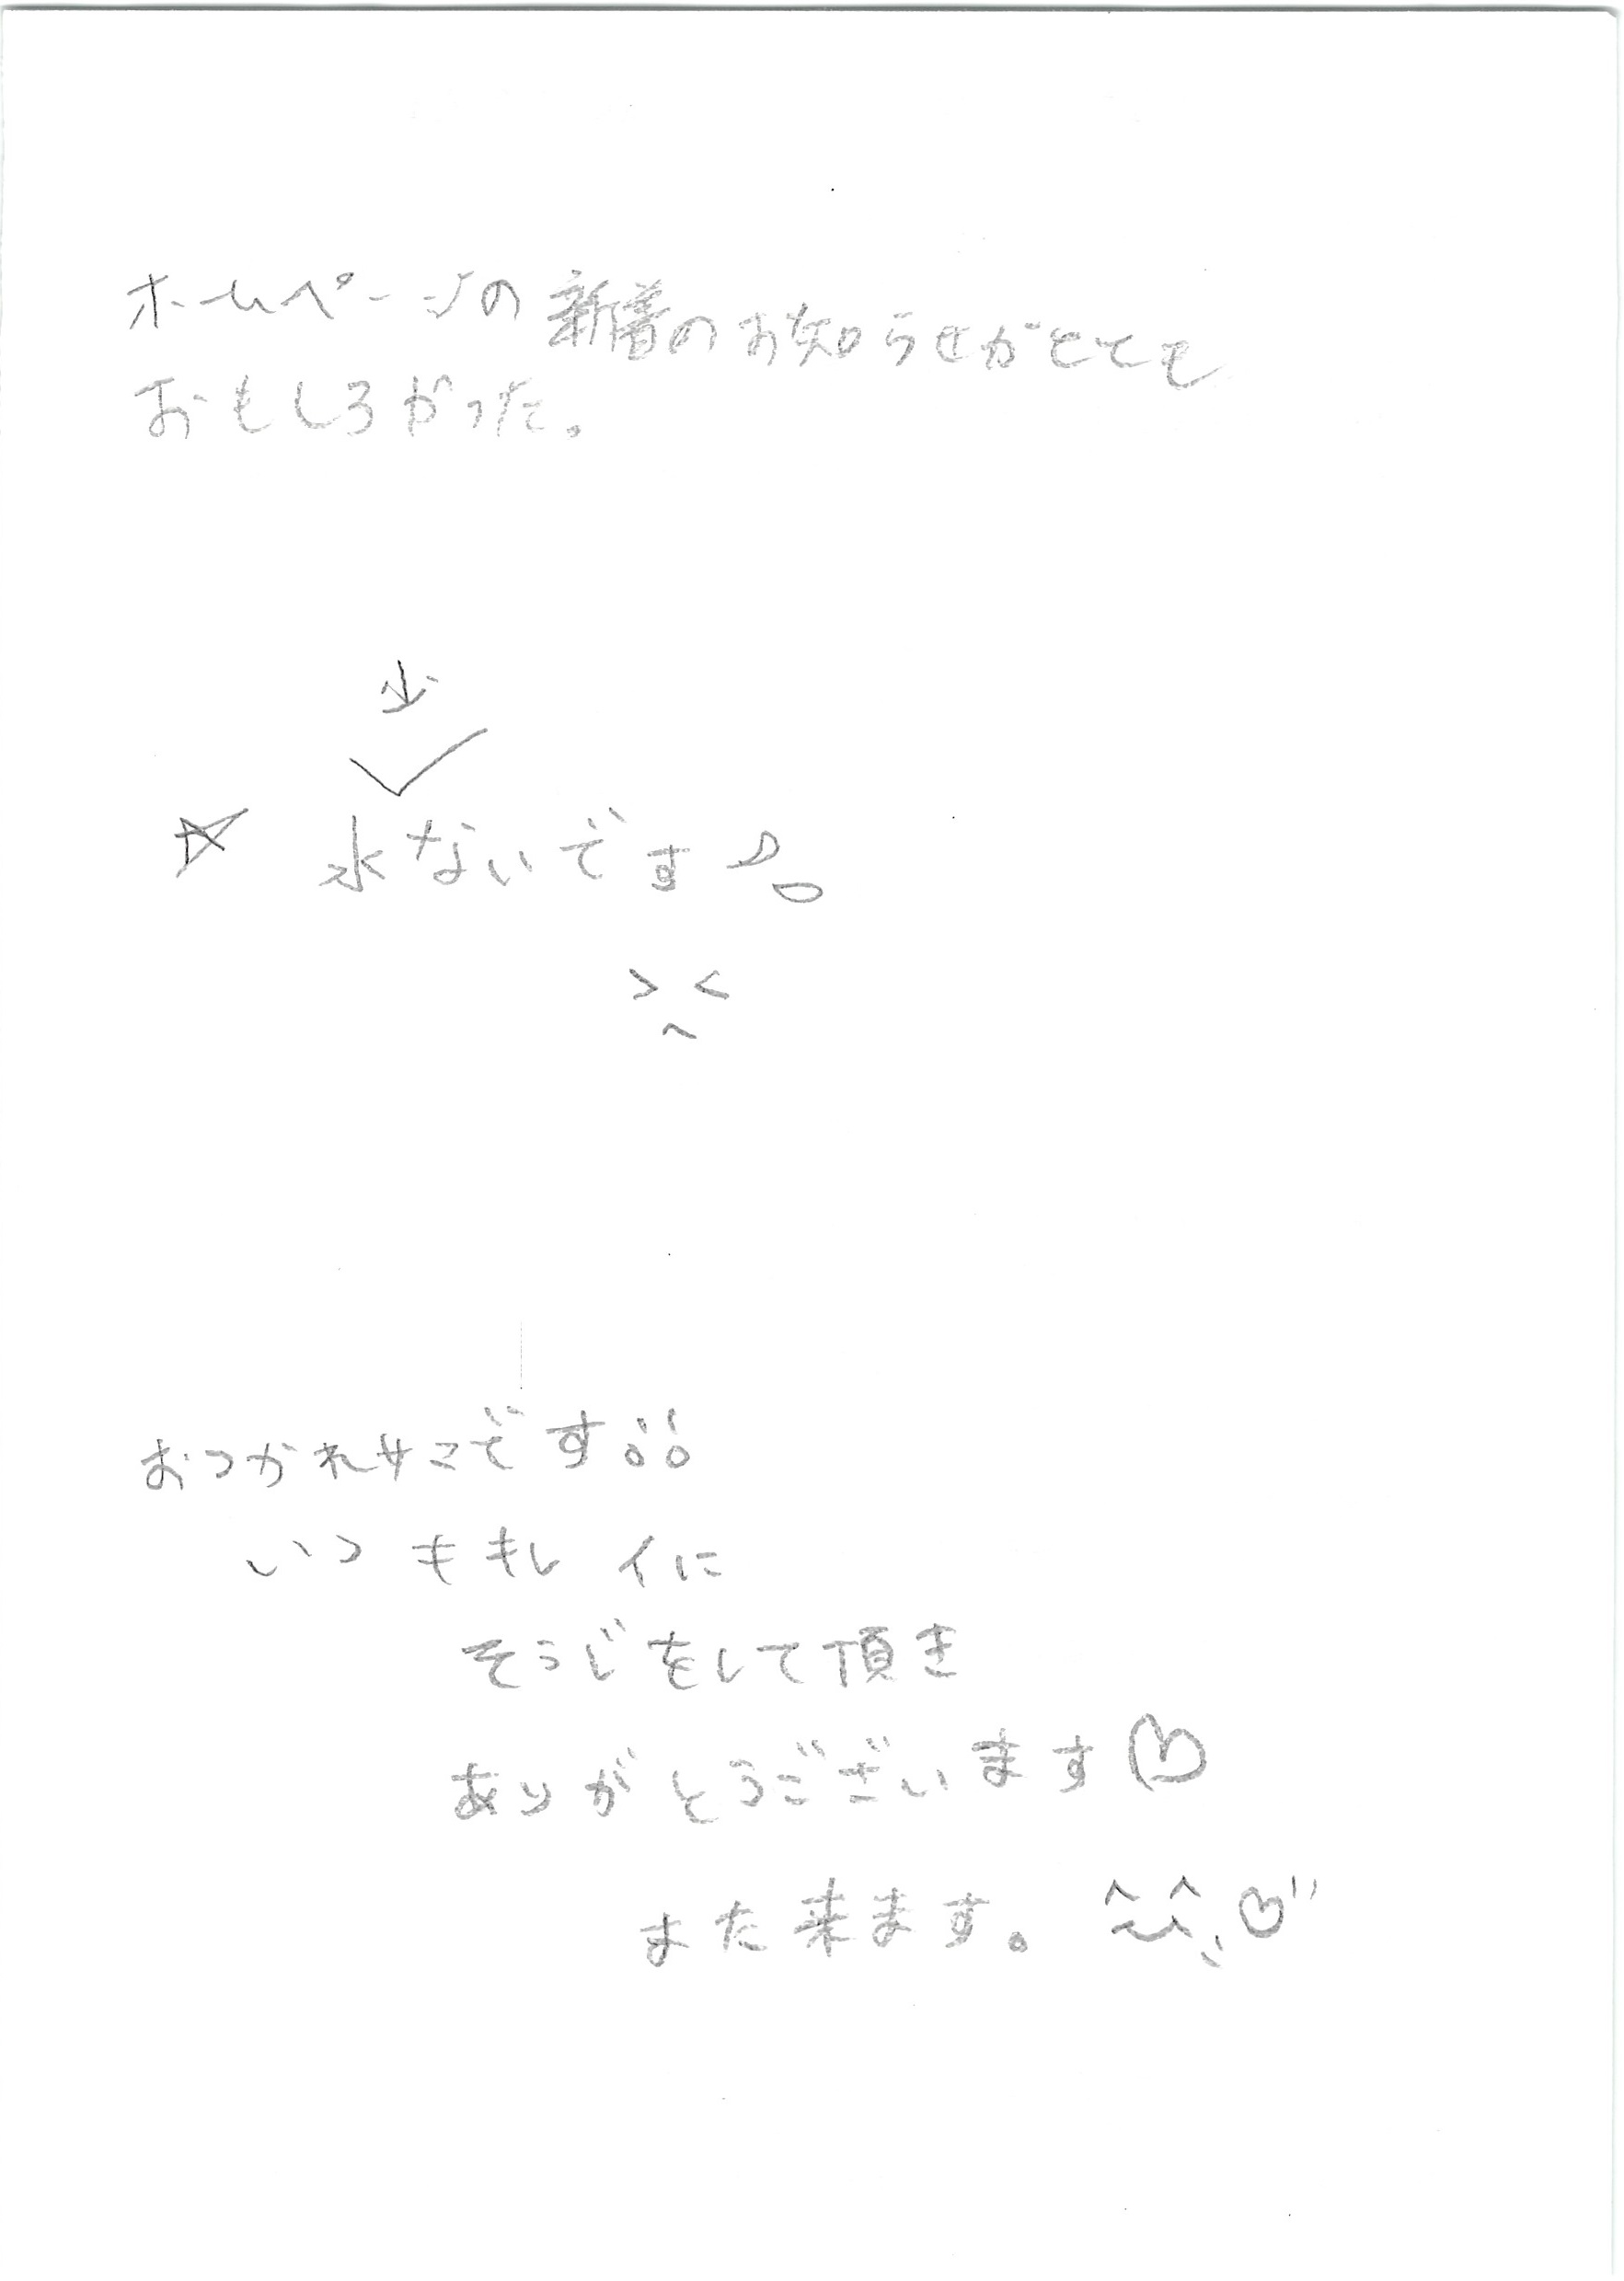 ホームページの新着のお知らせがとても
おもしろかった。
☆ 水少ないです♪。
> <
^
おつかれサマです!!
いつもキレイに
そうじをして頂き
ありがとうございます♡
また来ます。^^♡